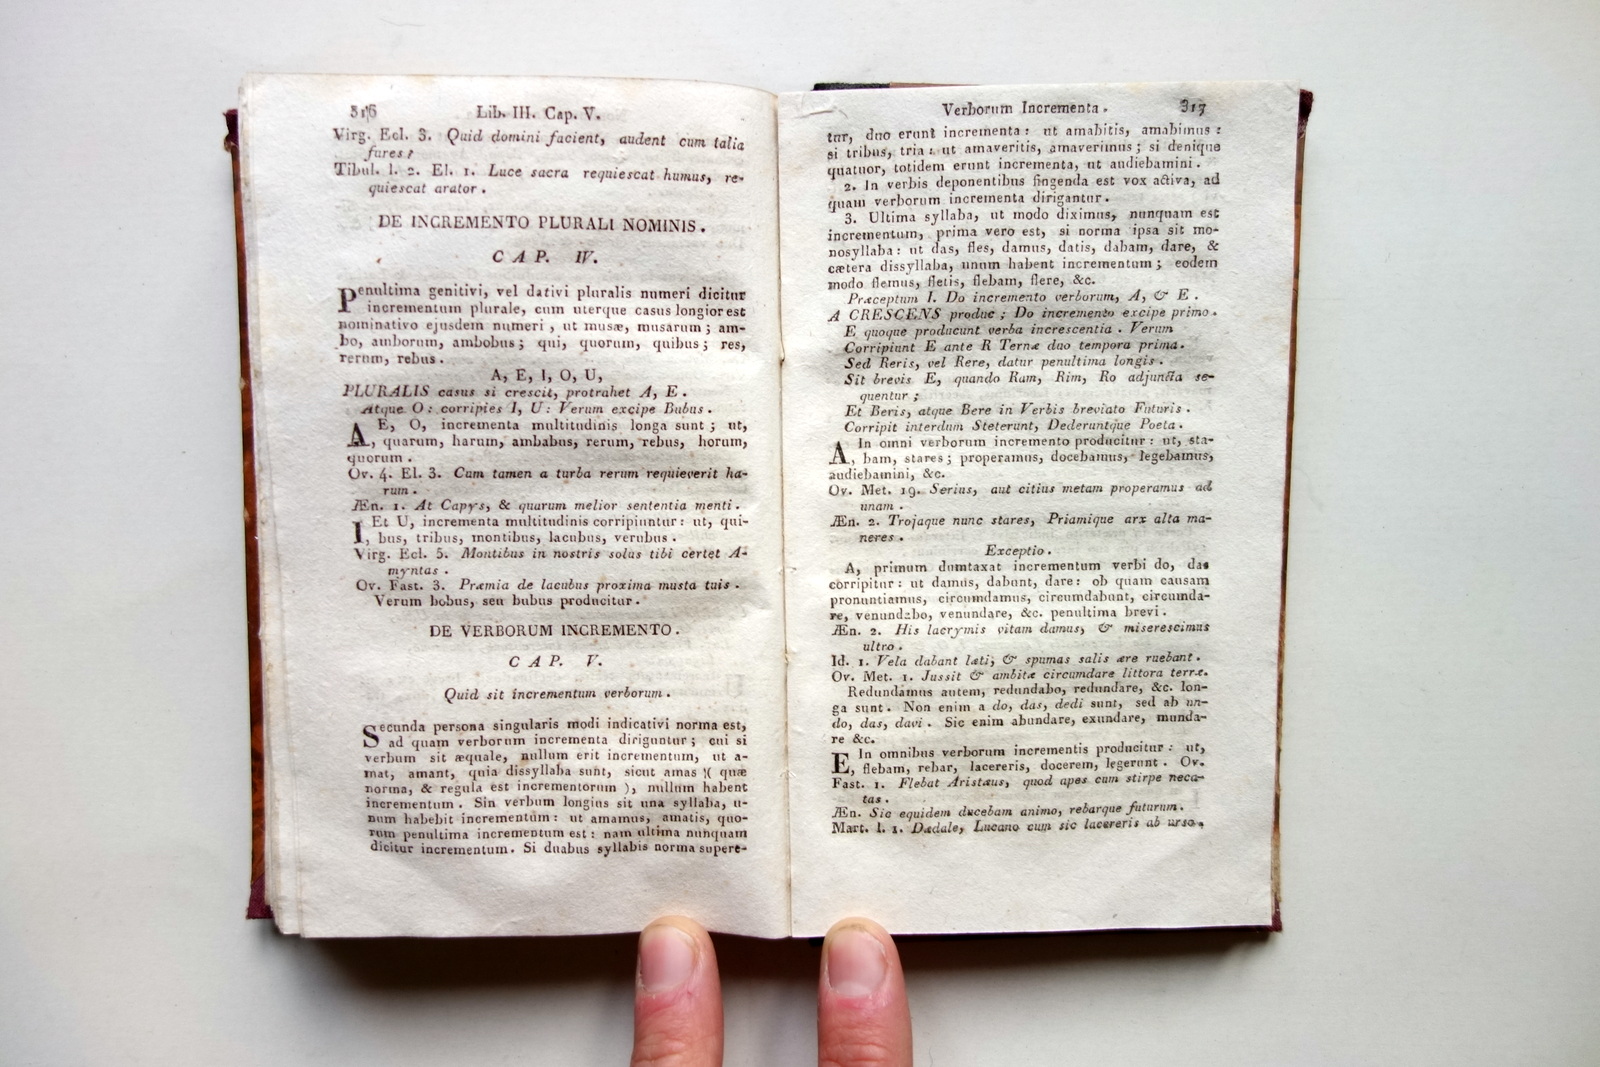 316 Lib. III. Cap. V.
Virg. Ecl. 3. Quid domini facient, audent cum talia
fures?
Tibul. l. 2. El. 1. Luce sacra requiescat humus, re-
quiescat arator.
DE INCREMENTO PLURALI NOMINIS.
CAP. IV.
Penultima genitivi, vel dativi pluralis numeri dicitur
incrementum plurale, cum uterque casus longior est
nominativo ejusdem numeri, ut musæ, musarum; am-
bo, amborum, ambobus; qui, quorum, quibus; res,
rerum, rebus.
A, E, I, O, U,
PLURALIS casus si crescit, protrahet A, E.
Atque O: corripies I, U: Verum excipe Bubus.
A E, O, incrementa multitudinis longa sunt; ut,
, quarum, harum, ambabus, rerum, rebus, horum,
quorum.
Ov. 4. El. 3. Cum tamen a turba rerum requieverit ha-
rum.
Æn. 1. At Capys, & quarum melior sententia menti.
I Et U, incrementa multitudinis corripiuntur: ut, qui-
, bus, tribus, montibus, lacubus, verubus.
Virg. Ecl. 5. Montibus in nostris solus tibi certet A-
myntas.
Ov. Fast. 3. Præmia de lacubus proxima musta tuis.
Verum bobus, seu bubus producitur.
DE VERBORUM INCREMENTO.
CAP. V.
Quid sit incrementum verborum.
Secunda persona singularis modi indicativi norma est,
ad quam verborum incrementa diriguntur; cui si
verbum sit æquale, nullum erit incrementum, ut a-
mat, amant, quia dissyllaba sunt, sicut amas (quæ
norma, & regula est incrementorum), nullum habent
incrementum. Sin verbum longius sit una syllaba, u-
num habebit incrementum: ut amamus, amatis, quo-
rum penultima incrementum est: nam ultima nunquam
dicitur incrementum. Si duabus syllabis norma supere-
Verborum Incrementa. 317
tur, duo erunt incrementa: ut amabitis, amabimus:
si tribus, tria: ut amaveritis, amaverimus; si denique
quatuor, totidem erunt incrementa, ut audiebamini.
2. In verbis deponentibus fingenda est vox activa, ad
quam verborum incrementa dirigantur.
3. Ultima syllaba, ut modo diximus, nunquam est
incrementum, prima vero est, si norma ipsa sit mo-
nosyllaba: ut das, fles, damus, datis, dabam, dare, &
cætera dissyllaba, unum habent incrementum; eodem
modo flemus, fletis, flebam, flere, &c.
Præceptum I. Do incremento verborum, A, & E.
A CRESCENS produc; Do incremento excipe primo.
E quoque producunt verba increscentia. Verum
Corripiunt E ante R Ternæ duo tempora prima.
Sed Reris, vel Rere, datur penultima longis.
Sit brevis E, quando Ram, Rim, Ro adjuncta se-
quentur;
Et Beris, atque Bere in Verbis breviato Futuris.
Corripit interdum Steterunt, Dederuntque Poeta.
A In omni verborum incremento producitur: ut, sta-
, bam, stares; properamus, docebamus, legebamus,
audiebamini, &c.
Ov. Met. 19. Serius, aut citius metam properamus ad
unam.
Æn. 2. Trojaque nunc stares, Priamique arx alta ma-
neres.
Exceptio.
A, primum dumtaxat incrementum verbi do, das
corripitur: ut damus, dabunt, dare: ob quam causam
pronuntiamus, circumdamus, circumdabunt, circumda-
re, venundabo, venundare, &c. penultima brevi.
Æn. 2. His lacrymis vitam damus, & miserescimus
ultro.
Id. 1. Vela dabant læti, & spumas salis ære ruebant.
Ov. Met. 1. Jussit & ambitæ circumdare littora terræ.
Redundamus autem, redundabo, redundare, &c. lon-
ga sunt. Non enim a do, das, dedi sunt, sed ab un-
do, das, davi. Sic enim abundare, exundare, munda-
re &c.
E In omnibus verborum incrementis producitur: ut,
, flebam, rebar, lacereris, docerem, legerunt. Ov.
Fast. 1. Flebat Aristæus, quod apes cum stirpe neca-
tas.
Æn. Sic equidem ducebam animo, rebarque futurum.
Mart. l. 1. Dædale, Lucano cum sic lacereris ab urso,